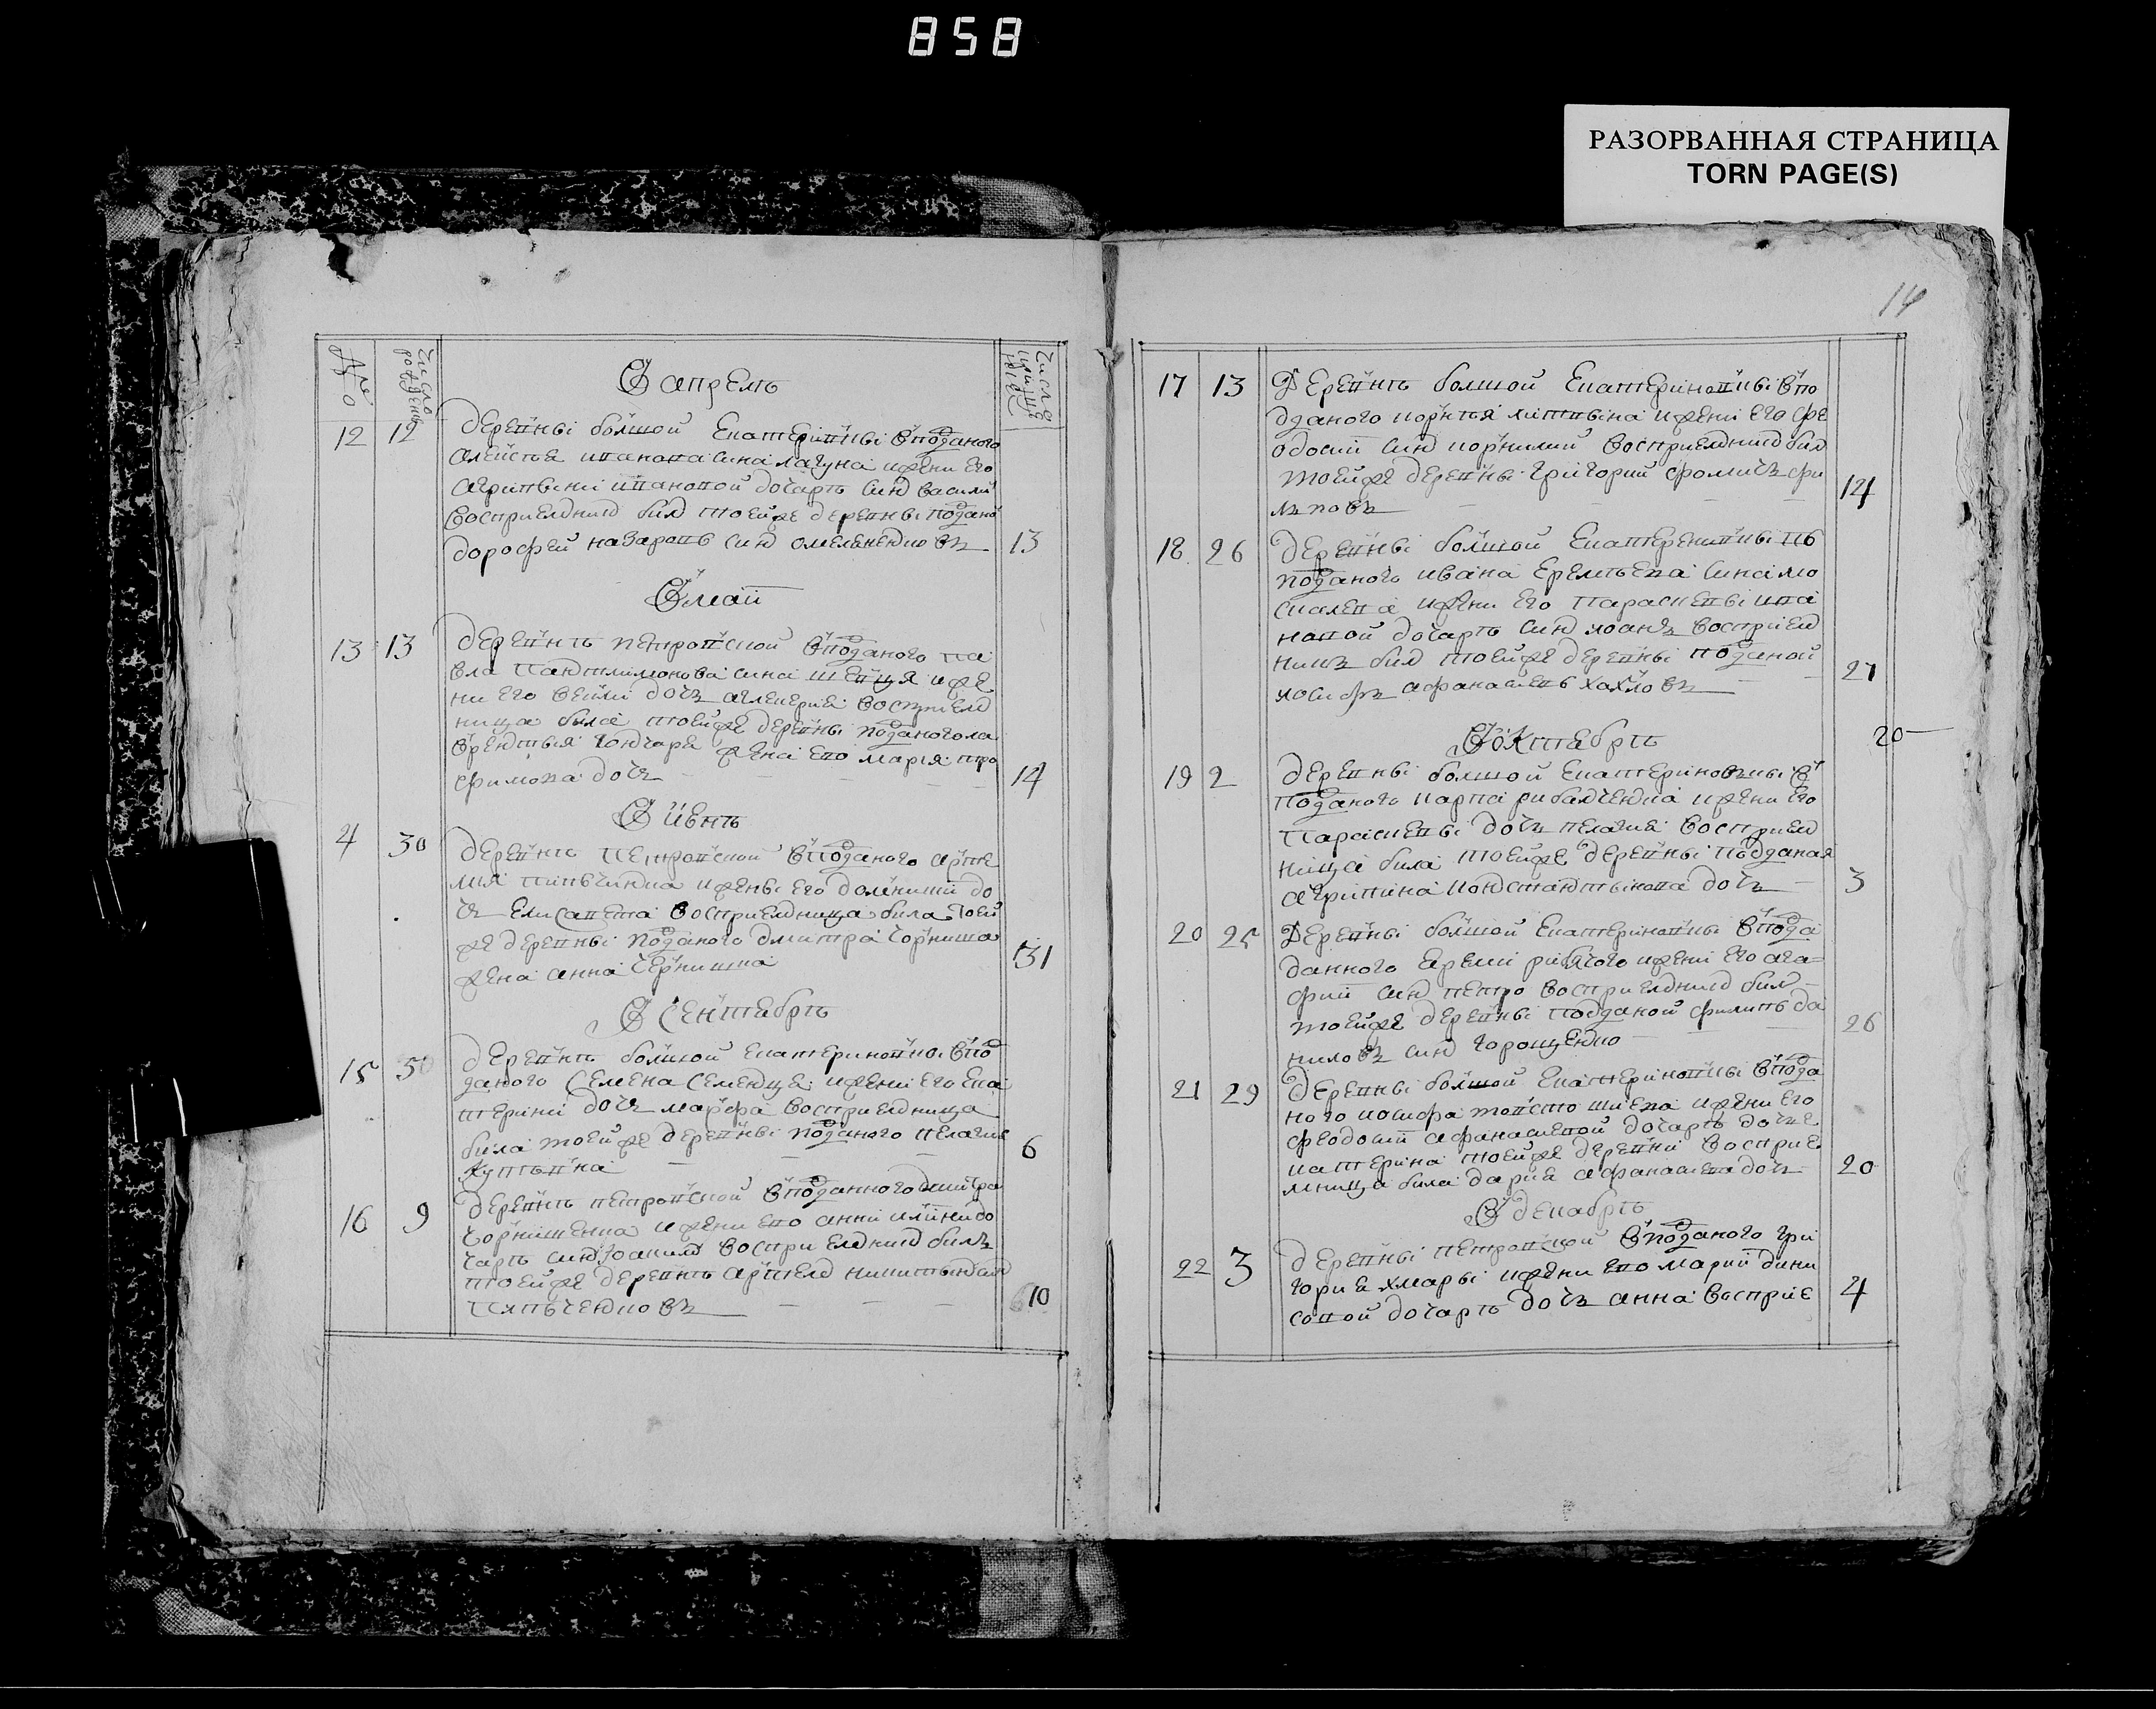 858
РАЗОРВАННАЯ СТРАНИЦА
TORN PAGE(S)
14
№ го
число рожденія
число крищенія
В апрель
12 12
деревні болшой Екатеринівні в подданого
Алексея иванова сина лагуна и жени его
Агрипвени ивановой дочарь син василий
восприемник бил тоей же деревні поддано
дорофей назаровъ син омеляненковъ 13
В маи
13 13
деревнь петровской в подданого па
вла пандилимонова сина шевця и же
ни его дочъ восприем
ница била тоей же деревні подданого ла
врентия гончаря жена его мария тро
фимова дочъ 14
В июнь
4 30
деревнь петровской в подданого арте
мия и жены его до
чъ елисавета восприемница била тоей
же деревні подданого дмитра чорниша
жена анна чернишка 31
В сентябрь
15 30
деревнь болшой екатериновкі в под
даного семена семенця и жени его ека
терини дочъ марфа восприемница
била тоей же деревні подданого пелагия
6
16 9
деревнь петровской в подданного дмитра
чорнишенка и жени его анни
чарь син иоаким восприемник билъ
тоей же деревнь артем никитин син
10
17 13
Деревнь болшой Екатериновкі в по
дданого корния литвина и жени его фе
одосии син корнилий восприемник бил
тоей же деревні григорий фомичъ
14
18 26
деревні болшой Екатеренивкі
подданого ивана еремиева сина мо
скалева и жени его параскеви ива
новой дочарь син иоанъ восприем
никъ бил тоей же деревні подданой
иосифъ афанасиевъ хахловъ 27
В октябрь
20
19 2
деревні болшой екатериновки в
подданого карпа рибалченка и жени его
параскеви дочъ пелагия восприем
ница била тоей же деревні подданая
агрипина констандтинова дочъ 3
20 25
Деревні болшой Екатериновкі в подда
данного еремии рибного и жени его ага
фии син петро восприемник бил
тоей же деревні подданой филипъ да
ниловъ син горощенко 26
21 29
деревні болшой Екатериновкі в подда
ного иосифа и жени его
феодосии афанасиевой дочарь дочъ е
катерина тоей же деревни восприе
мница била дария афанасиева дочъ 20
В декабрь
22 3
деревні петровской в подданого гри
гория хмари и жени его марии дени
совой дочарь дочъ анна восприе 4